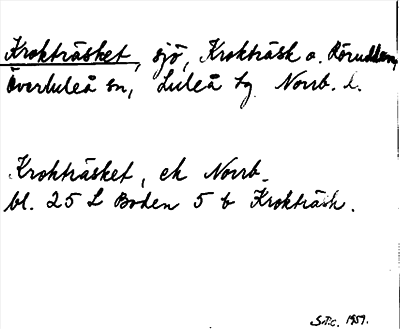 Krokträsket, sjö, Krokträsk o. Rörudden,
Överluleå sn, Luleå tg Norrb. l.
Krokträsket, ek Norrb.
bl. 25 L Boden 5 b Krokträsk.
1959.